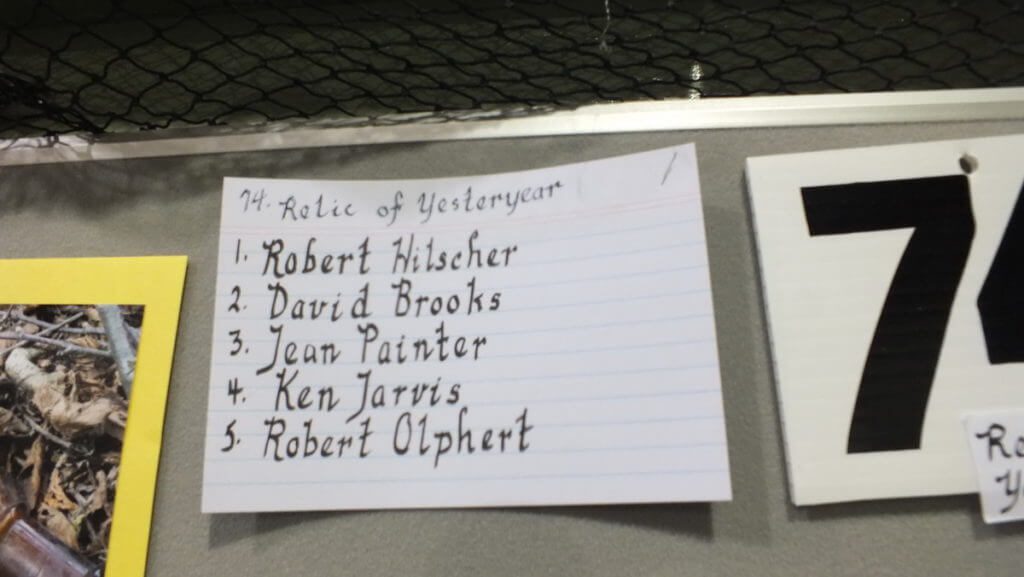 74. Relic of Yesteryear
1. Robert Hilscher
2. David Brooks
3. Jean Painter
4. Ken Jarvis
5. Robert Olphert
74